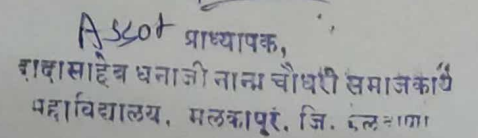 Assot प्राध्यापक,
दादासाहेब धनाजी नाना चौधरी समाजकार्य
महाविद्यालय, मलकापूर. जि.